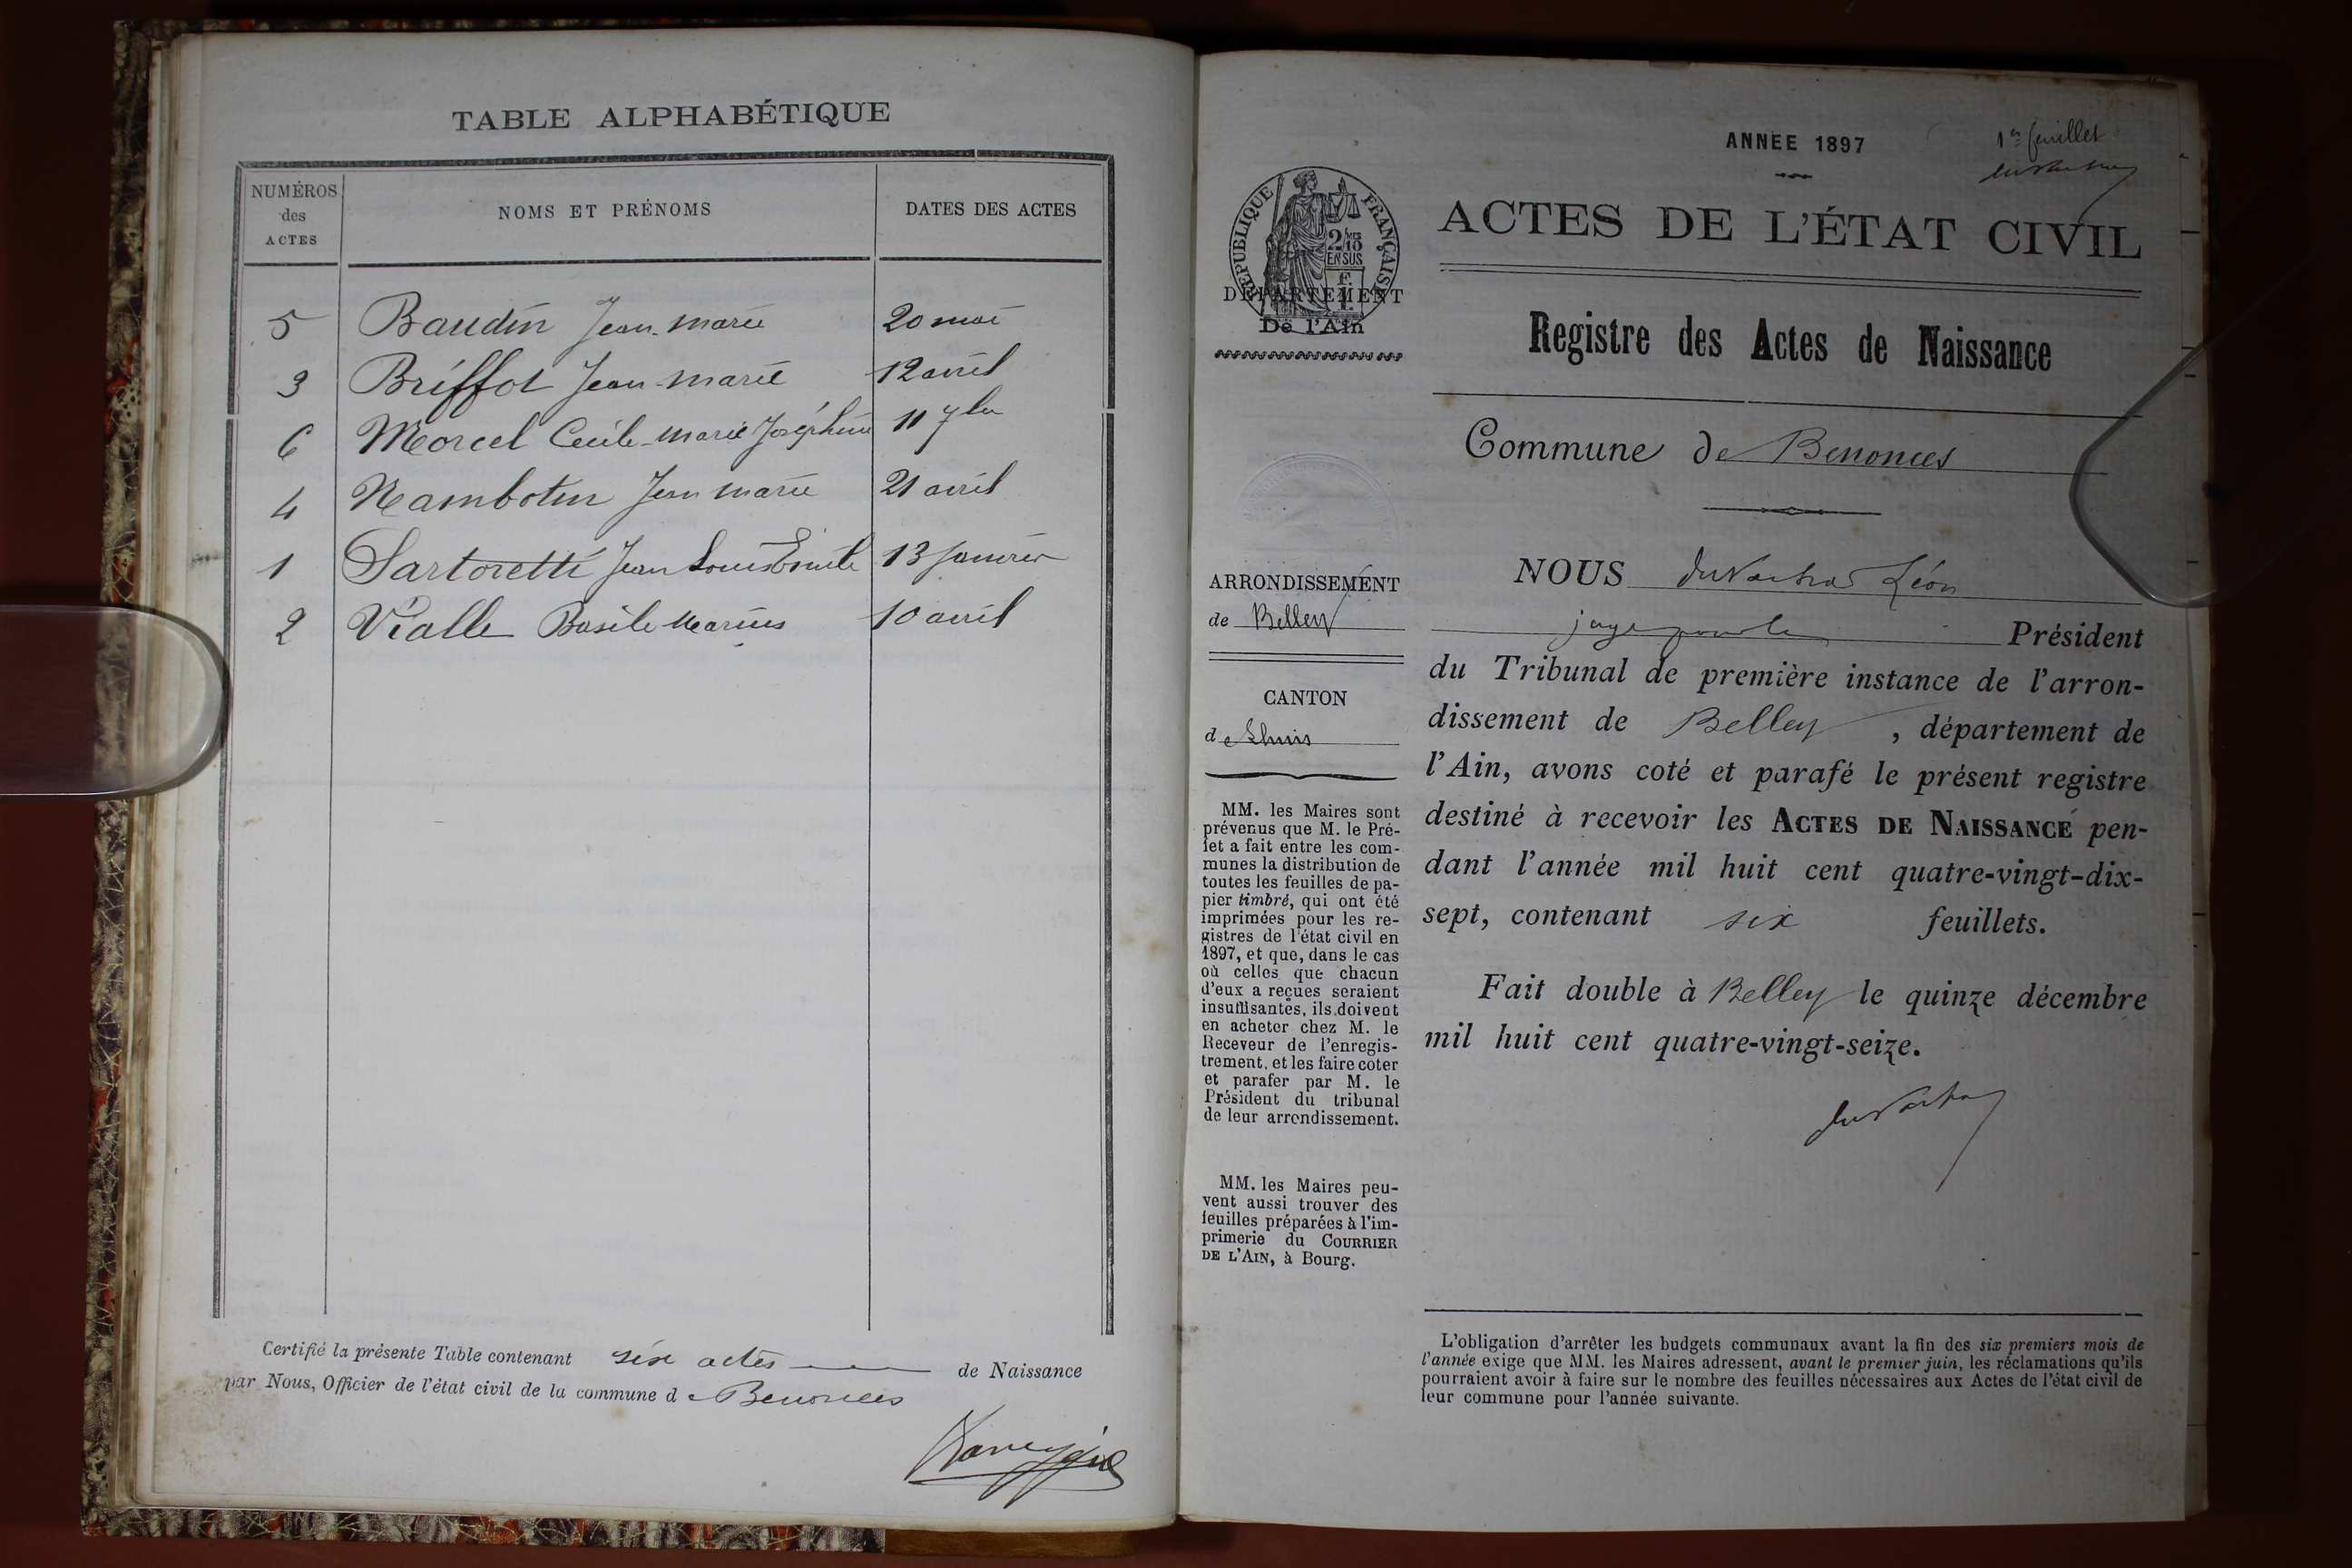 TABLE ALPHABÉTIQUE
NUMÉROS des ACTES
NOMS ET PRÉNOMS
DATES DES ACTES
5 Baudin Jean-Marie 20 mai
3 Briffot Jean-Marie 12 avril
6 Morcel Cécile-Marie Joséphine 11 7bre
4 Nambotin Jean Marie 21 avril
1 Sartoretti Jean Louis Emile 13 Janvier
2 Vialle Basile Marius 10 avril
Certifié la présente Table contenant six actes de Naissance
par Nous, Officier de l'état civil de la commune de Benonces
ANNÉE 1897
1er feuillet
REPUBLIQUE FRANÇAISE
2/10 EN SUS
DÉPARTEMENT
De l'Ain
ARRONDISSEMENT
de Belley
CANTON
de Lhuis
MM. les Maires sont
prévenus que M. le Pré-
fet a fait entre les com-
munes la distribution de
toutes les feuilles de pa-
pier timbré, qui ont été
imprimées pour les re-
gistres de l'état civil en
1897, et que, dans le cas
où celles que chacun
d'eux a reçues seraient
insuffisantes, ils doivent
en acheter chez M. le
Receveur de l'enregis-
trement, et les faire coter
et parafer par M. le
Président du tribunal
de leur arrondissement.
MM. les Maires peu-
vent aussi trouver des
feuilles préparées à l'im-
primerie du COURRIER
DE L'AIN, à Bourg.
ACTES DE L'ÉTAT CIVIL
Registre des Actes de Naissance
Commune de Benonces
NOUS Léon
juge pour le Président
du Tribunal de première instance de l'arron-
dissement de Belley, département de
l'Ain, avons coté et parafé le présent registre
destiné à recevoir les ACTES DE NAISSANCE pen-
dant l'année mil huit cent quatre-vingt-dix-
sept, contenant six feuillets.
Fait double à Belley le quinze décembre
mil huit cent quatre-vingt-seize.
L'obligation d'arrêter les budgets communaux avant la fin des six premiers mois de
l'année exige que MM. les Maires adressent, avant le premier juin, les réclamations qu'ils
pourraient avoir à faire sur le nombre des feuilles nécessaires aux Actes de l'état civil de
leur commune pour l'année suivante.